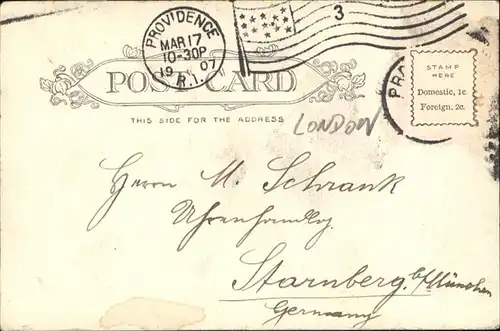 PROVIDENCE
MAR 17
10-30P
1907
R.I.
3
POST CARD
THIS SIDE FOR THE ADDRESS
STAMP
HERE
Domestic, 1c.
Foreign. 2c.
PRO
LONDON
Herrn M. Schrank
Uhrenhandlg.
Starnberg b/München
Germany